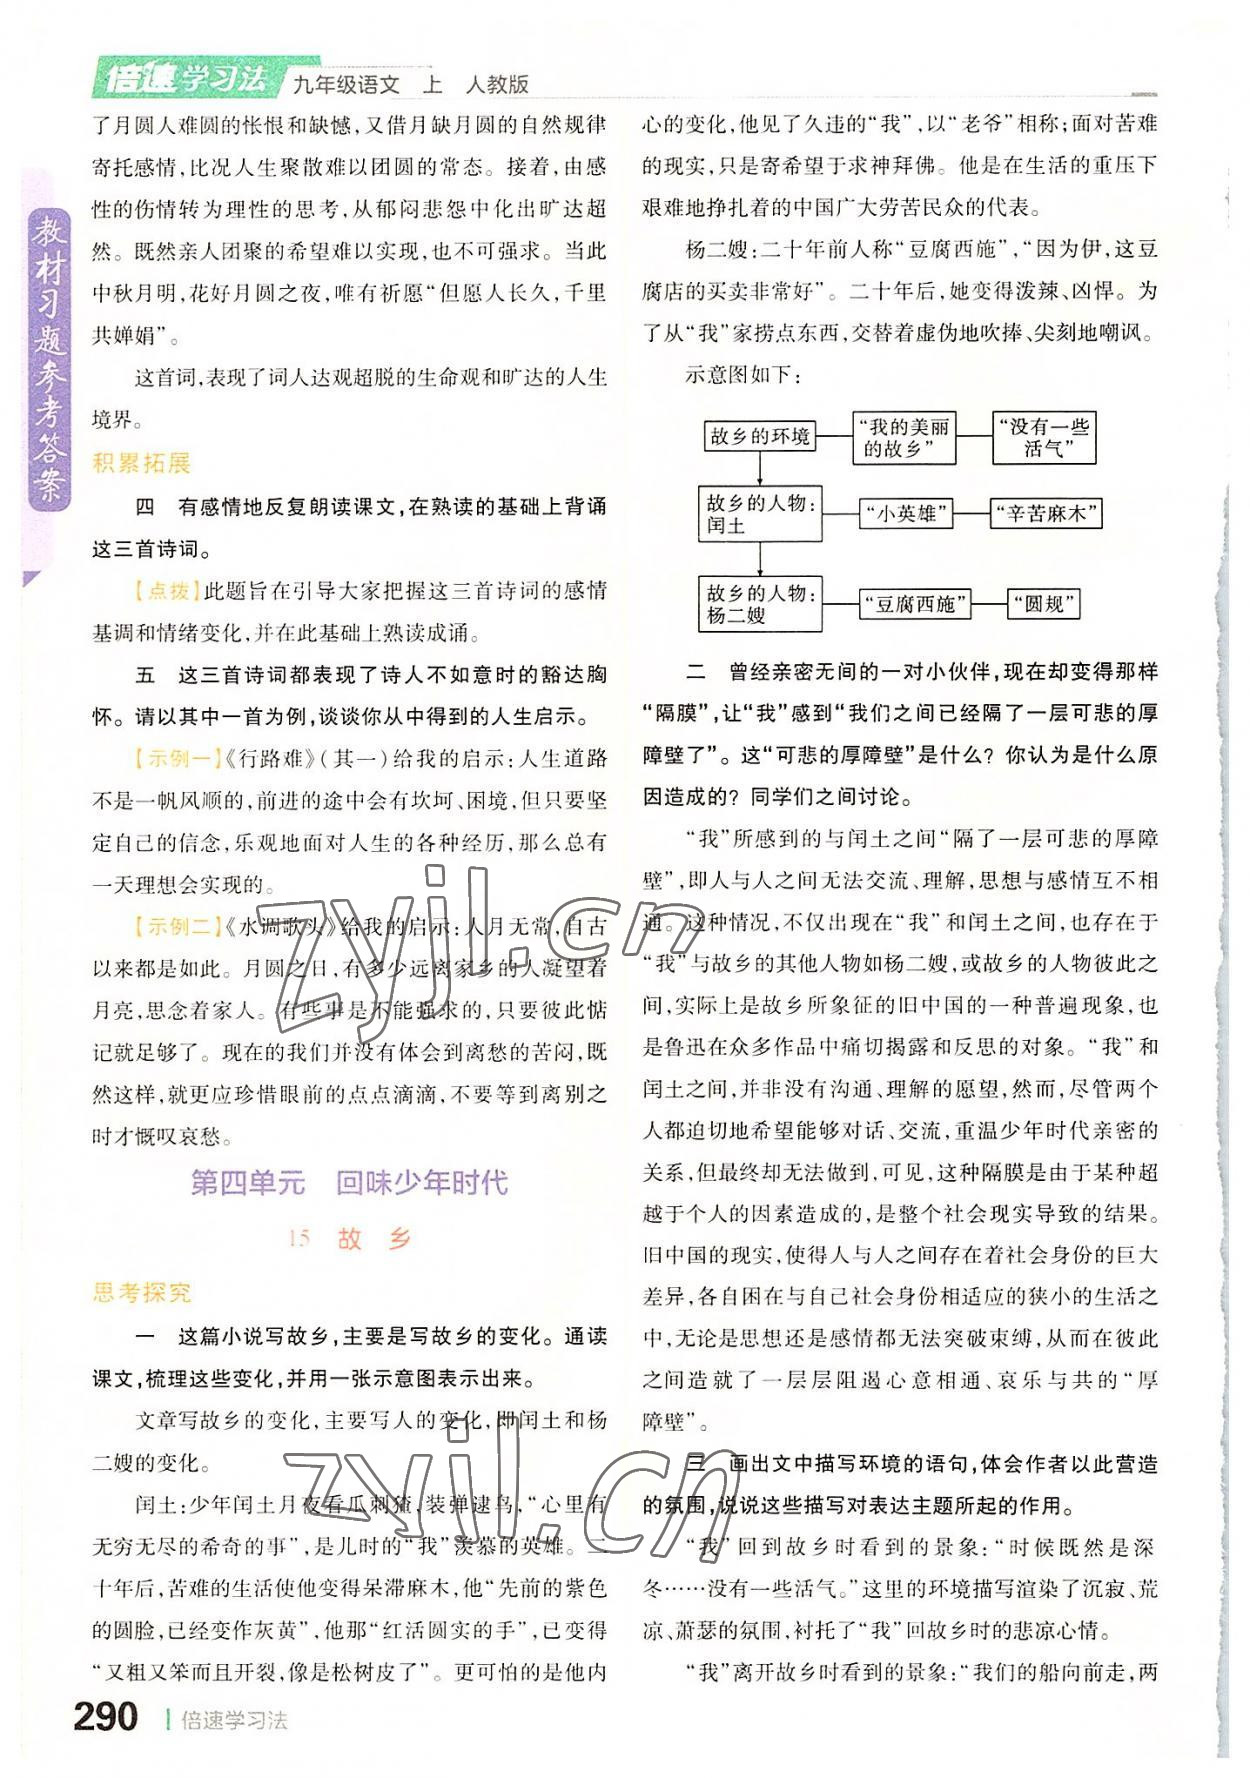 倍速学习法 九年级语文 上 人教版
教材习题参考答案
了月圆人难圆的怅恨和缺憾,又借月缺月圆的自然规律
寄托感情,比况人生聚散难以团圆的常态。接着,由感
性的伤情转为理性的思考,从郁闷悲怨中化出旷达超
然。既然亲人团聚的希望难以实现,也不可强求。当此
中秋月明,花好月圆之夜,唯有祈愿“但愿人长久,千里
共婵娟”。
这首词,表现了词人达观超脱的生命观和旷达的人生
境界。
积累拓展
四 有感情地反复朗读课文,在熟读的基础上背诵
这三首诗词。
【点拨】此题旨在引导大家把握这三首诗词的感情
基调和情绪变化,并在此基础上熟读成诵。
五 这三首诗词都表现了诗人不如意时的豁达胸
怀。请以其中一首为例,谈谈你从中得到的人生启示。
【示例一】《行路难》(其一)给我的启示:人生道路
不是一帆风顺的,前进的途中会有坎坷、困境,但只要坚
定自己的信念,乐观地面对人生的各种经历,那么总有
一天理想会实现的。
【示例二】《水调歌头》给我的启示:人月无常,自古
以来都是如此。月圆之日,有多少远离家乡的人凝望着
月亮,思念着家人。有些事是不能强求的,只要彼此惦
记就足够了。现在的我们并没有体会到离愁的苦闷,既
然这样,就更应珍惜眼前的点点滴滴,不要等到离别之
时才慨叹哀愁。
第四单元 回味少年时代
15 故 乡
思考探究
一 这篇小说写故乡,主要是写故乡的变化。通读
课文,梳理这些变化,并用一张示意图表示出来。
文章写故乡的变化,主要写人的变化,即闰土和杨
二嫂的变化。
闰土:少年闰土月夜看瓜刺猹,装弹逮鸟,“心里有
无穷无尽的希奇的事”,是儿时的“我”羡慕的英雄。二
十年后,苦难的生活使他变得呆滞麻木,他“先前的紫色
的圆脸,已经变作灰黄”,他那“红活圆实的手”,已变得
“又粗又笨而且开裂,像是松树皮了”。更可怕的是他内
心的变化,他见了久违的“我”,以“老爷”相称;面对苦难
的现实,只是寄希望于求神拜佛。他是在生活的重压下
艰难地挣扎着的中国广大劳苦民众的代表。
杨二嫂:二十年前人称“豆腐西施”,“因为伊,这豆
腐店的买卖非常好”。二十年后,她变得泼辣、凶悍。为
了从“我”家捞点东西,交替着虚伪地吹捧、尖刻地嘲讽。
示意图如下:
故乡的环境
“我的美丽
的故乡”
“没有一些
活气”
故乡的人物:
闰土
“小英雄”
“辛苦麻木”
故乡的人物:
杨二嫂
“豆腐西施”
“圆规”
二 曾经亲密无间的一对小伙伴,现在却变得那样
“隔膜”,让“我”感到“我们之间已经隔了一层可悲的厚
障壁了”。这“可悲的厚障壁”是什么?你认为是什么原
因造成的?同学们之间讨论。
“我”所感到的与闰土之间“隔了一层可悲的厚障
壁”,即人与人之间无法交流、理解,思想与感情互不相
通。这种情况,不仅出现在“我”和闰土之间,也存在于
“我”与故乡的其他人物如杨二嫂,或故乡的人物彼此之
间,实际上是故乡所象征的旧中国的一种普遍现象,也
是鲁迅在众多作品中痛切揭露和反思的对象。“我”和
闰土之间,并非没有沟通、理解的愿望,然而,尽管两个
人都迫切地希望能够对话、交流,重温少年时代亲密的
关系,但最终却无法做到,可见,这种隔膜是由于某种超
越于个人的因素造成的,是整个社会现实导致的结果。
旧中国的现实,使得人与人之间存在着社会身份的巨大
差异,各自困在与自己社会身份相适应的狭小的生活之
中,无论是思想还是感情都无法突破束缚,从而在彼此
之间造就了一层层阻遏心意相通、哀乐与共的“厚
障壁”。
三 画出文中描写环境的语句,体会作者以此营造
的氛围,说说这些描写对表达主题所起的作用。
“我”回到故乡时看到的景象:“时候既然是深
冬……没有一些活气。”这里的环境描写渲染了沉寂、荒
凉、萧瑟的氛围,衬托了“我”回故乡时的悲凉心情。
“我”离开故乡时看到的景象:“我们的船向前走,两
290 倍速学习法
zyjl.cn
zyjl.cn